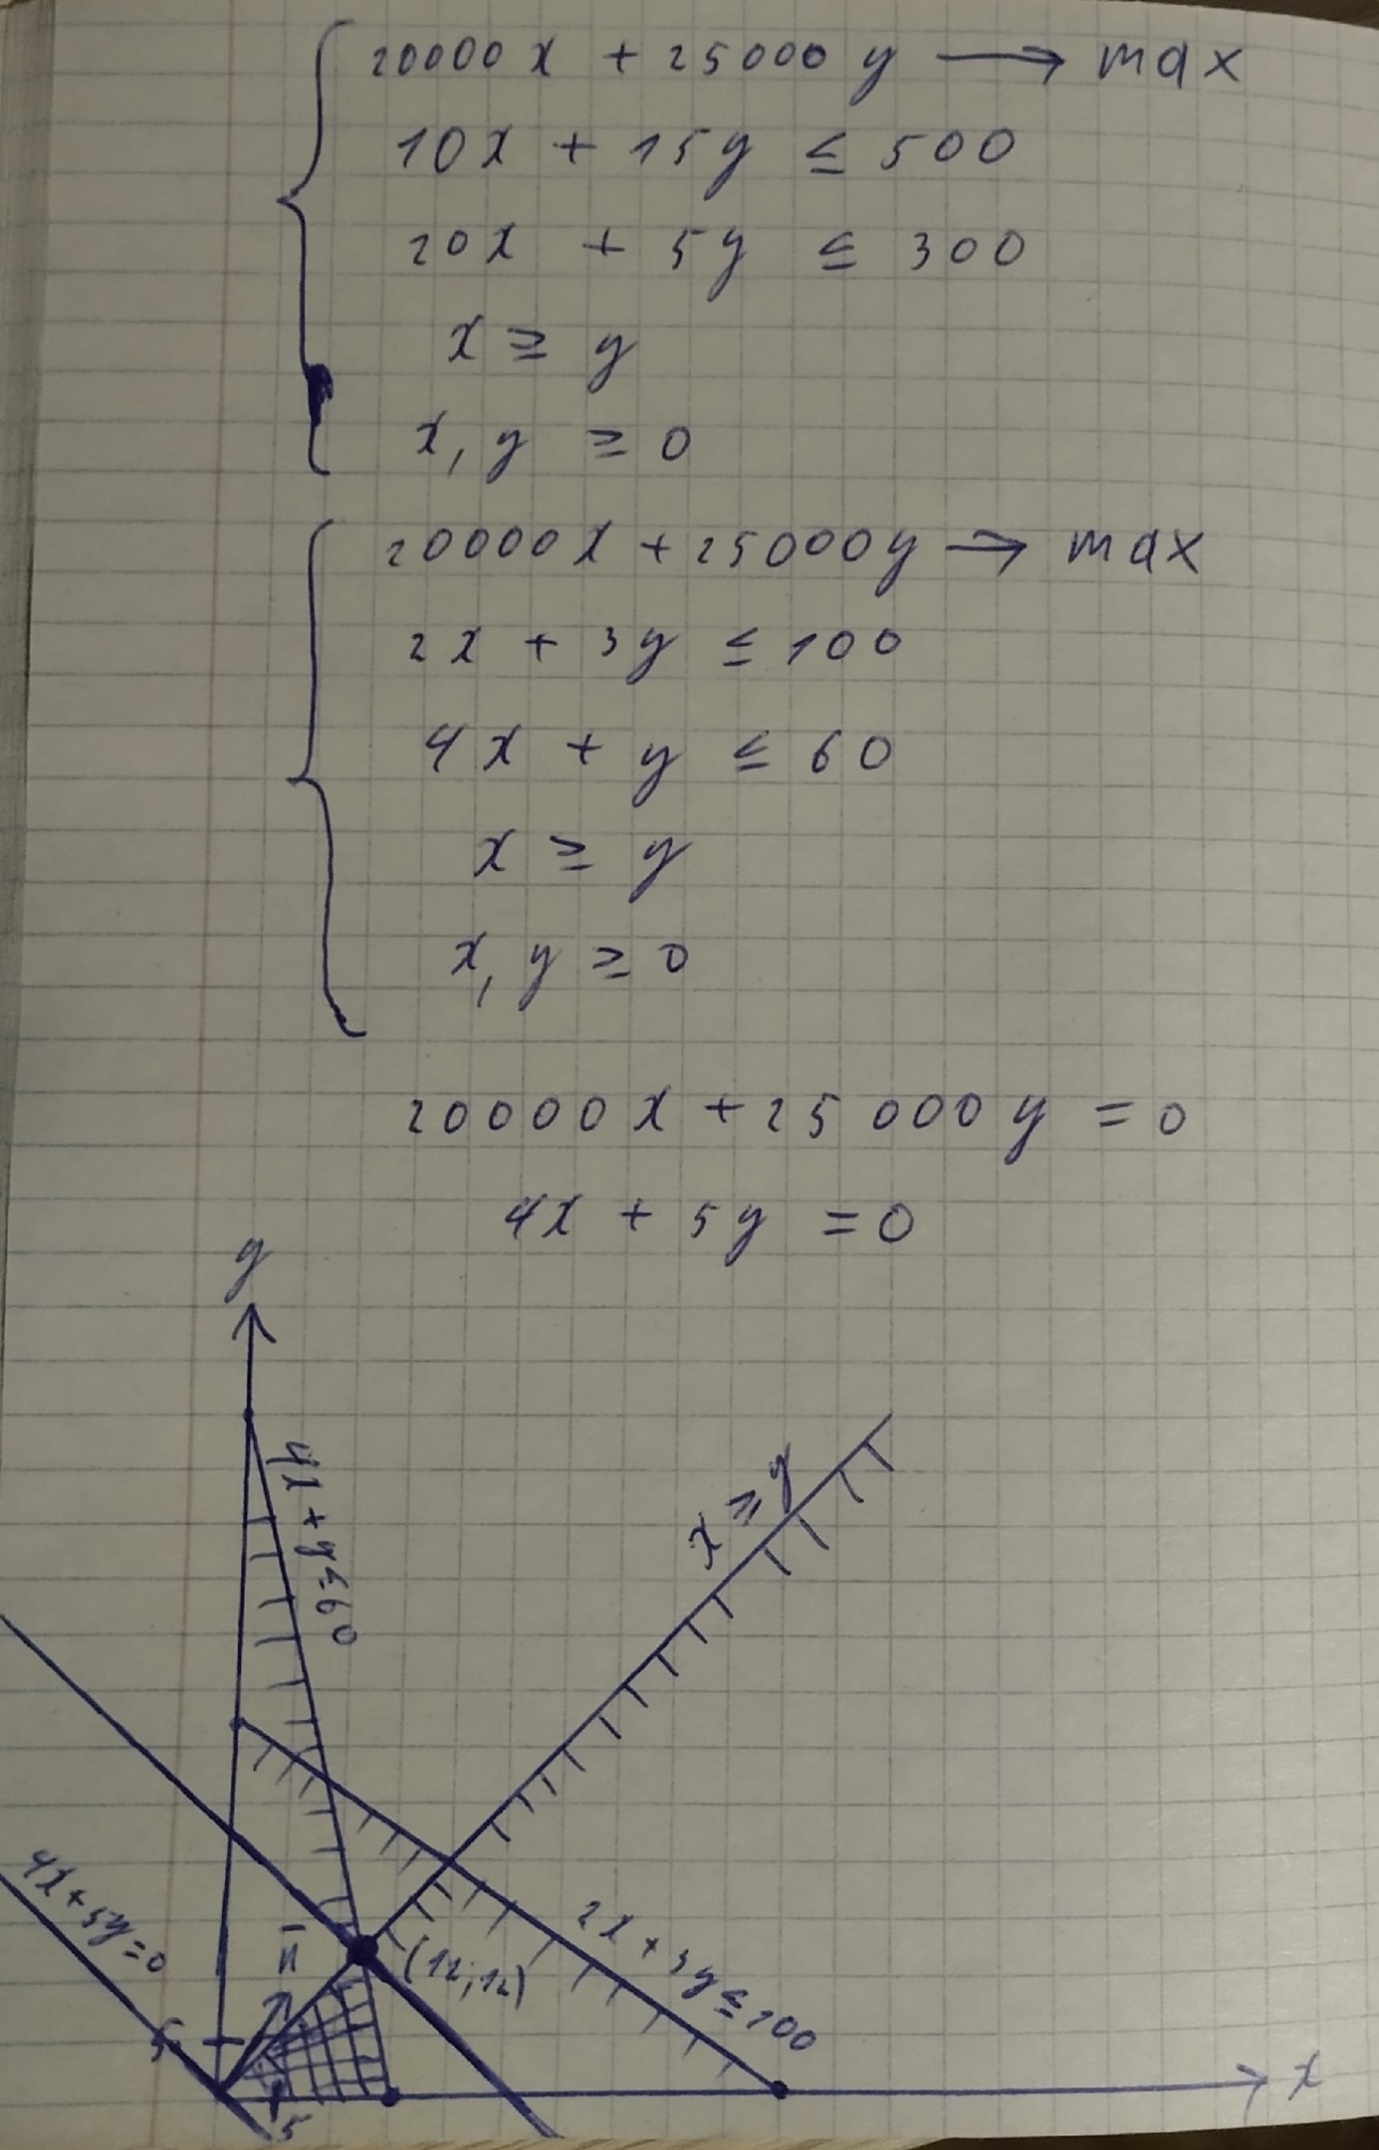 20000x + 25000y → max
10x + 15y ≤ 500
20x + 5y ≤ 300
x ≥ y
x, y ≥ 0
20000x + 25000y → max
2x + 3y ≤ 100
4x + y ≤ 60
x ≥ y
x, y ≥ 0
20000x + 25000y = 0
4x + 5y = 0
y
4x + y ≤ 60
x ≥ y
4x + 5y = 0
n̄
(12; 12)
2x + 3y ≤ 100
5
5
x